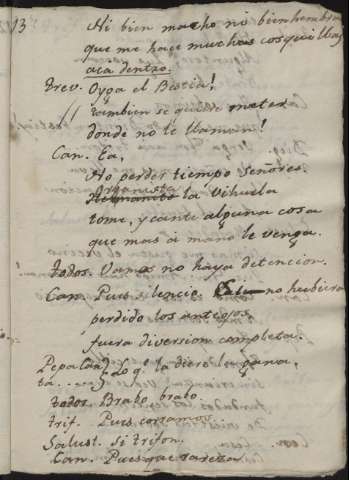 13
Ni bien macho ni bien hembra
que me hace muchas cosquillas
aca dentro.
Trev. Oyga el Bestia!
tambien se quiere meter
donde no le llaman!
Can. Ea,
No perder tiempo señores.
organista
la vihuela
tome, y cante alguna cosa
que mas à mano le venga.
todos. Vamos no haya detencion.
Can. Pues silencio. no hubiera
perdido los anteojos,
fuera diversion completa.
Pepa lo q.e la diere la gana,
ta....
todos. Brabo, brabo.
trif. Pues corramos.
Salust. si trifon.
Can. Pues que rareza.